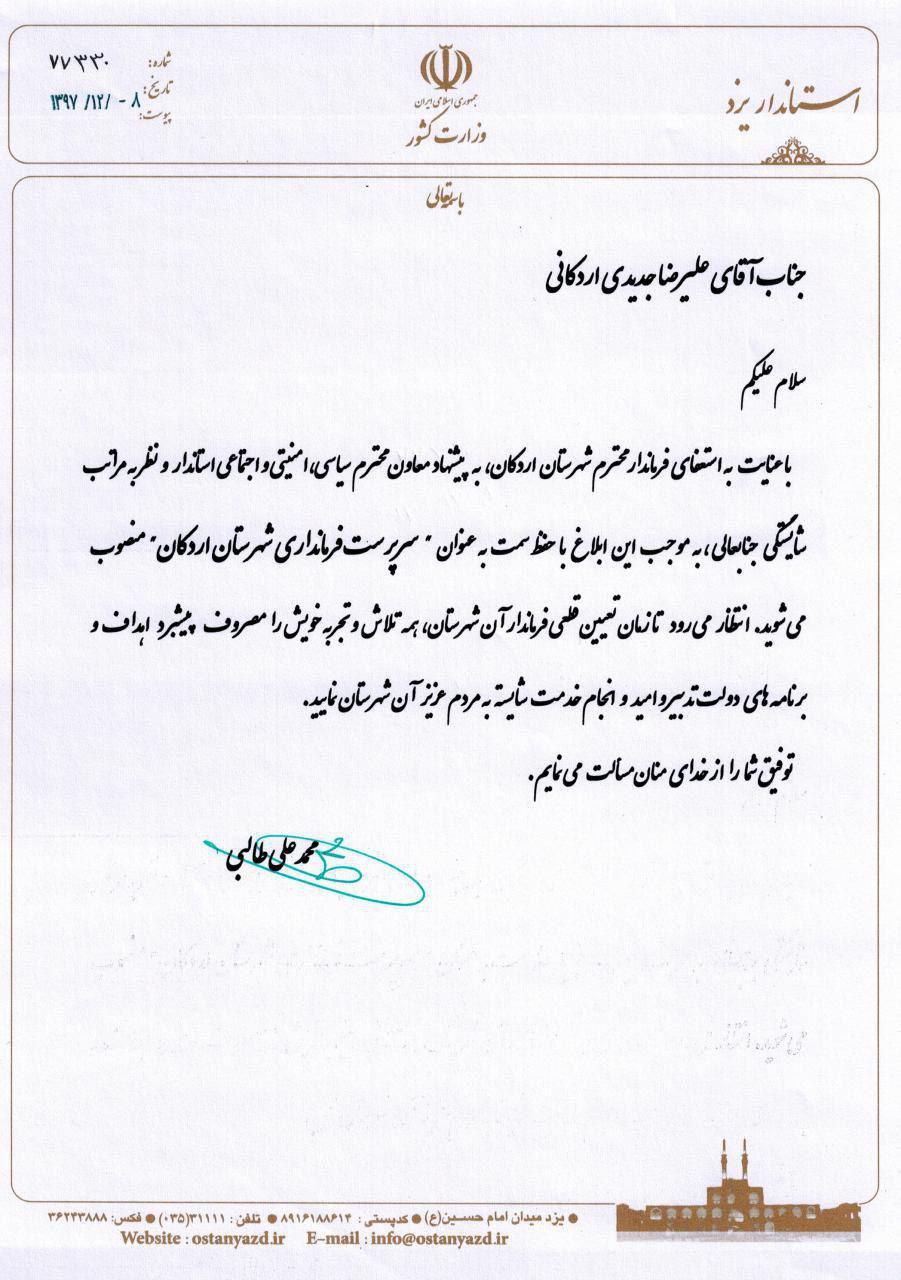 استاندار یزد
جمهوری اسلامی ایران
وزارت کشور
شماره: ۷۷۳۳۰
تاریخ: ۱۳۹۷/۱۲/۰۸
پیوست:
باسمه‌تعالی
جناب آقای علیرضا جدیدی اردکانی
سلام علیکم
با عنایت به استعفای فرماندار محترم شهرستان اردکان، به پیشنهاد معاون محترم سیاسی، امنیتی و اجتماعی استاندار و نظر به مراتب
شایستگی جنابعالی، به موجب این ابلاغ با حفظ سمت به عنوان "سرپرست فرمانداری شهرستان اردکان" منصوب
می شوید. انتظار می رود تا زمان تعیین قطعی فرماندار آن شهرستان، همه تلاش و تجربه خویش را مصروف پیشبرد اهداف و
برنامه های دولت تدبیر و امید و انجام خدمت شایسته به مردم عزیز آن شهرستان نمایید.
توفیق شما را از خدای منان مسالت می نمایم.
محمد علی طالبی
● یزد میدان امام حسین(ع) ● کدپستی : ۸۹۱۶۱۸۸۶۱۴ ● تلفن : ۳۱۱۱۱(۰۳۵) ● فکس: ۳۶۲۴۳۸۸۸
Website : ostanyazd.ir E-mail : info@ostanyazd.ir